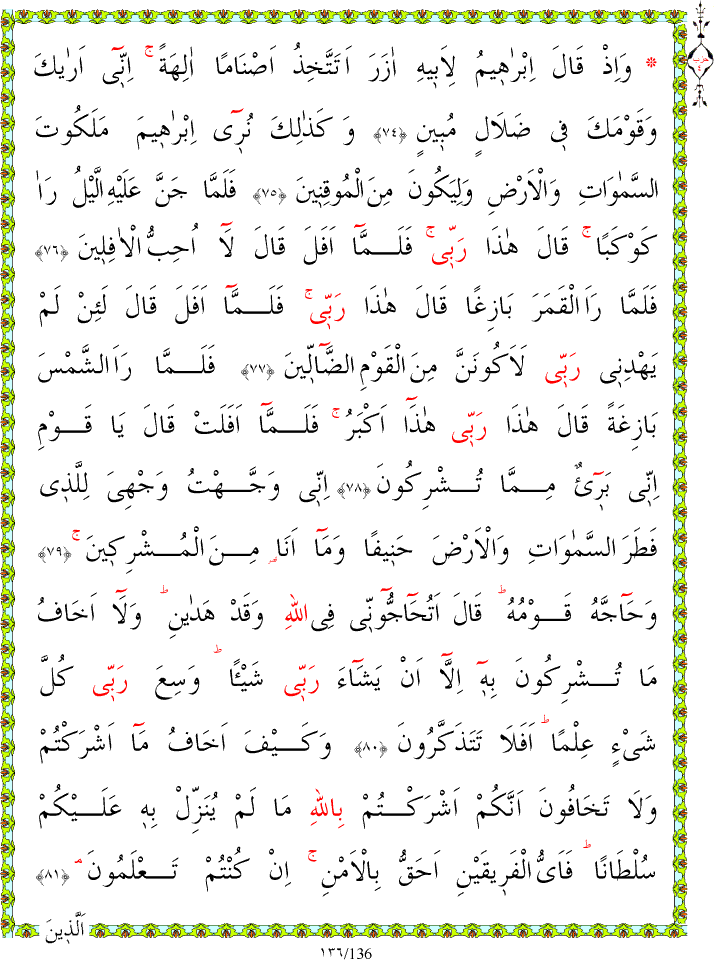 حزب
* وَاِذْ قَالَ اِبْرٰه۪يمُ لِاَب۪يهِ اٰزَرَ اَتَتَّخِذُ اَصْنَامًا اٰلِهَةًۚ اِنّ۪ٓي اَرٰيكَ
وَقَوْمَكَ ف۪ي ضَلَالٍ مُب۪ينٍ ﴿٧٤﴾ وَكَذٰلِكَ نُر۪ٓي اِبْرٰه۪يمَ مَلَكُوتَ
السَّمٰوَاتِ وَالْاَرْضِ وَلِيَكُونَ مِنَ الْمُوقِن۪ينَ ﴿٧٥﴾ فَلَمَّا جَنَّ عَلَيْهِ الَّيْلُ رَاٰ
كَوْكَبًاۚ قَالَ هٰذَا رَبّ۪يۚ فَلَمَّٓا اَفَلَ قَالَ لَٓا اُحِبُّ الْاٰفِل۪ينَ ﴿٧٦﴾
فَلَمَّا رَاَ الْقَمَرَ بَازِغًا قَالَ هٰذَا رَبّ۪يۚ فَلَمَّٓا اَفَلَ قَالَ لَئِنْ لَمْ
يَهْدِن۪ي رَبّ۪ي لَاَكُونَنَّ مِنَ الْقَوْمِ الضَّٓالّ۪ينَ ﴿٧٧﴾ فَلَمَّا رَاَ الشَّمْسَ
بَازِغَةً قَالَ هٰذَا رَبّ۪ي هٰذَٓا اَكْبَرُۚ فَلَمَّٓا اَفَلَتْ قَالَ يَا قَوْمِ
اِنّ۪ي بَر۪ٓيءٌ مِمَّا تُشْرِكُونَ ﴿٧٨﴾ اِنّ۪ي وَجَّهْتُ وَجْهِيَ لِلَّذ۪ي
فَطَرَ السَّمٰوَاتِ وَالْاَرْضَ حَن۪يفًا وَمَٓا اَنَا۬ مِنَ الْمُشْرِك۪ينَۚ ﴿٧٩﴾
وَحَٓاجَّهُ قَوْمُهُۜ قَالَ اَتُحَٓاجُّٓونّ۪ي فِي اللّٰهِ وَقَدْ هَدٰينِۜ وَلَٓا اَخَافُ
مَا تُشْرِكُونَ بِه۪ٓ اِلَّٓا اَنْ يَشَٓاءَ رَبّ۪ي شَيْـًٔاۜ وَسِعَ رَبّ۪ي كُلَّ
شَيْءٍ عِلْمًاۜ اَفَلَا تَتَذَكَّرُونَ ﴿٨٠﴾ وَكَيْفَ اَخَافُ مَٓا اَشْرَكْتُمْ
وَلَا تَخَافُونَ اَنَّكُمْ اَشْرَكْتُمْ بِاللّٰهِ مَا لَمْ يُنَزِّلْ بِه۪ عَلَيْكُمْ
سُلْطَانًاۜ فَاَيُّ الْفَر۪يقَيْنِ اَحَقُّ بِالْاَمْنِۚ اِنْ كُنْتُمْ تَعْلَمُونَۢ ﴿٨١﴾
اَلَّذ۪ينَ
١٣٦/136